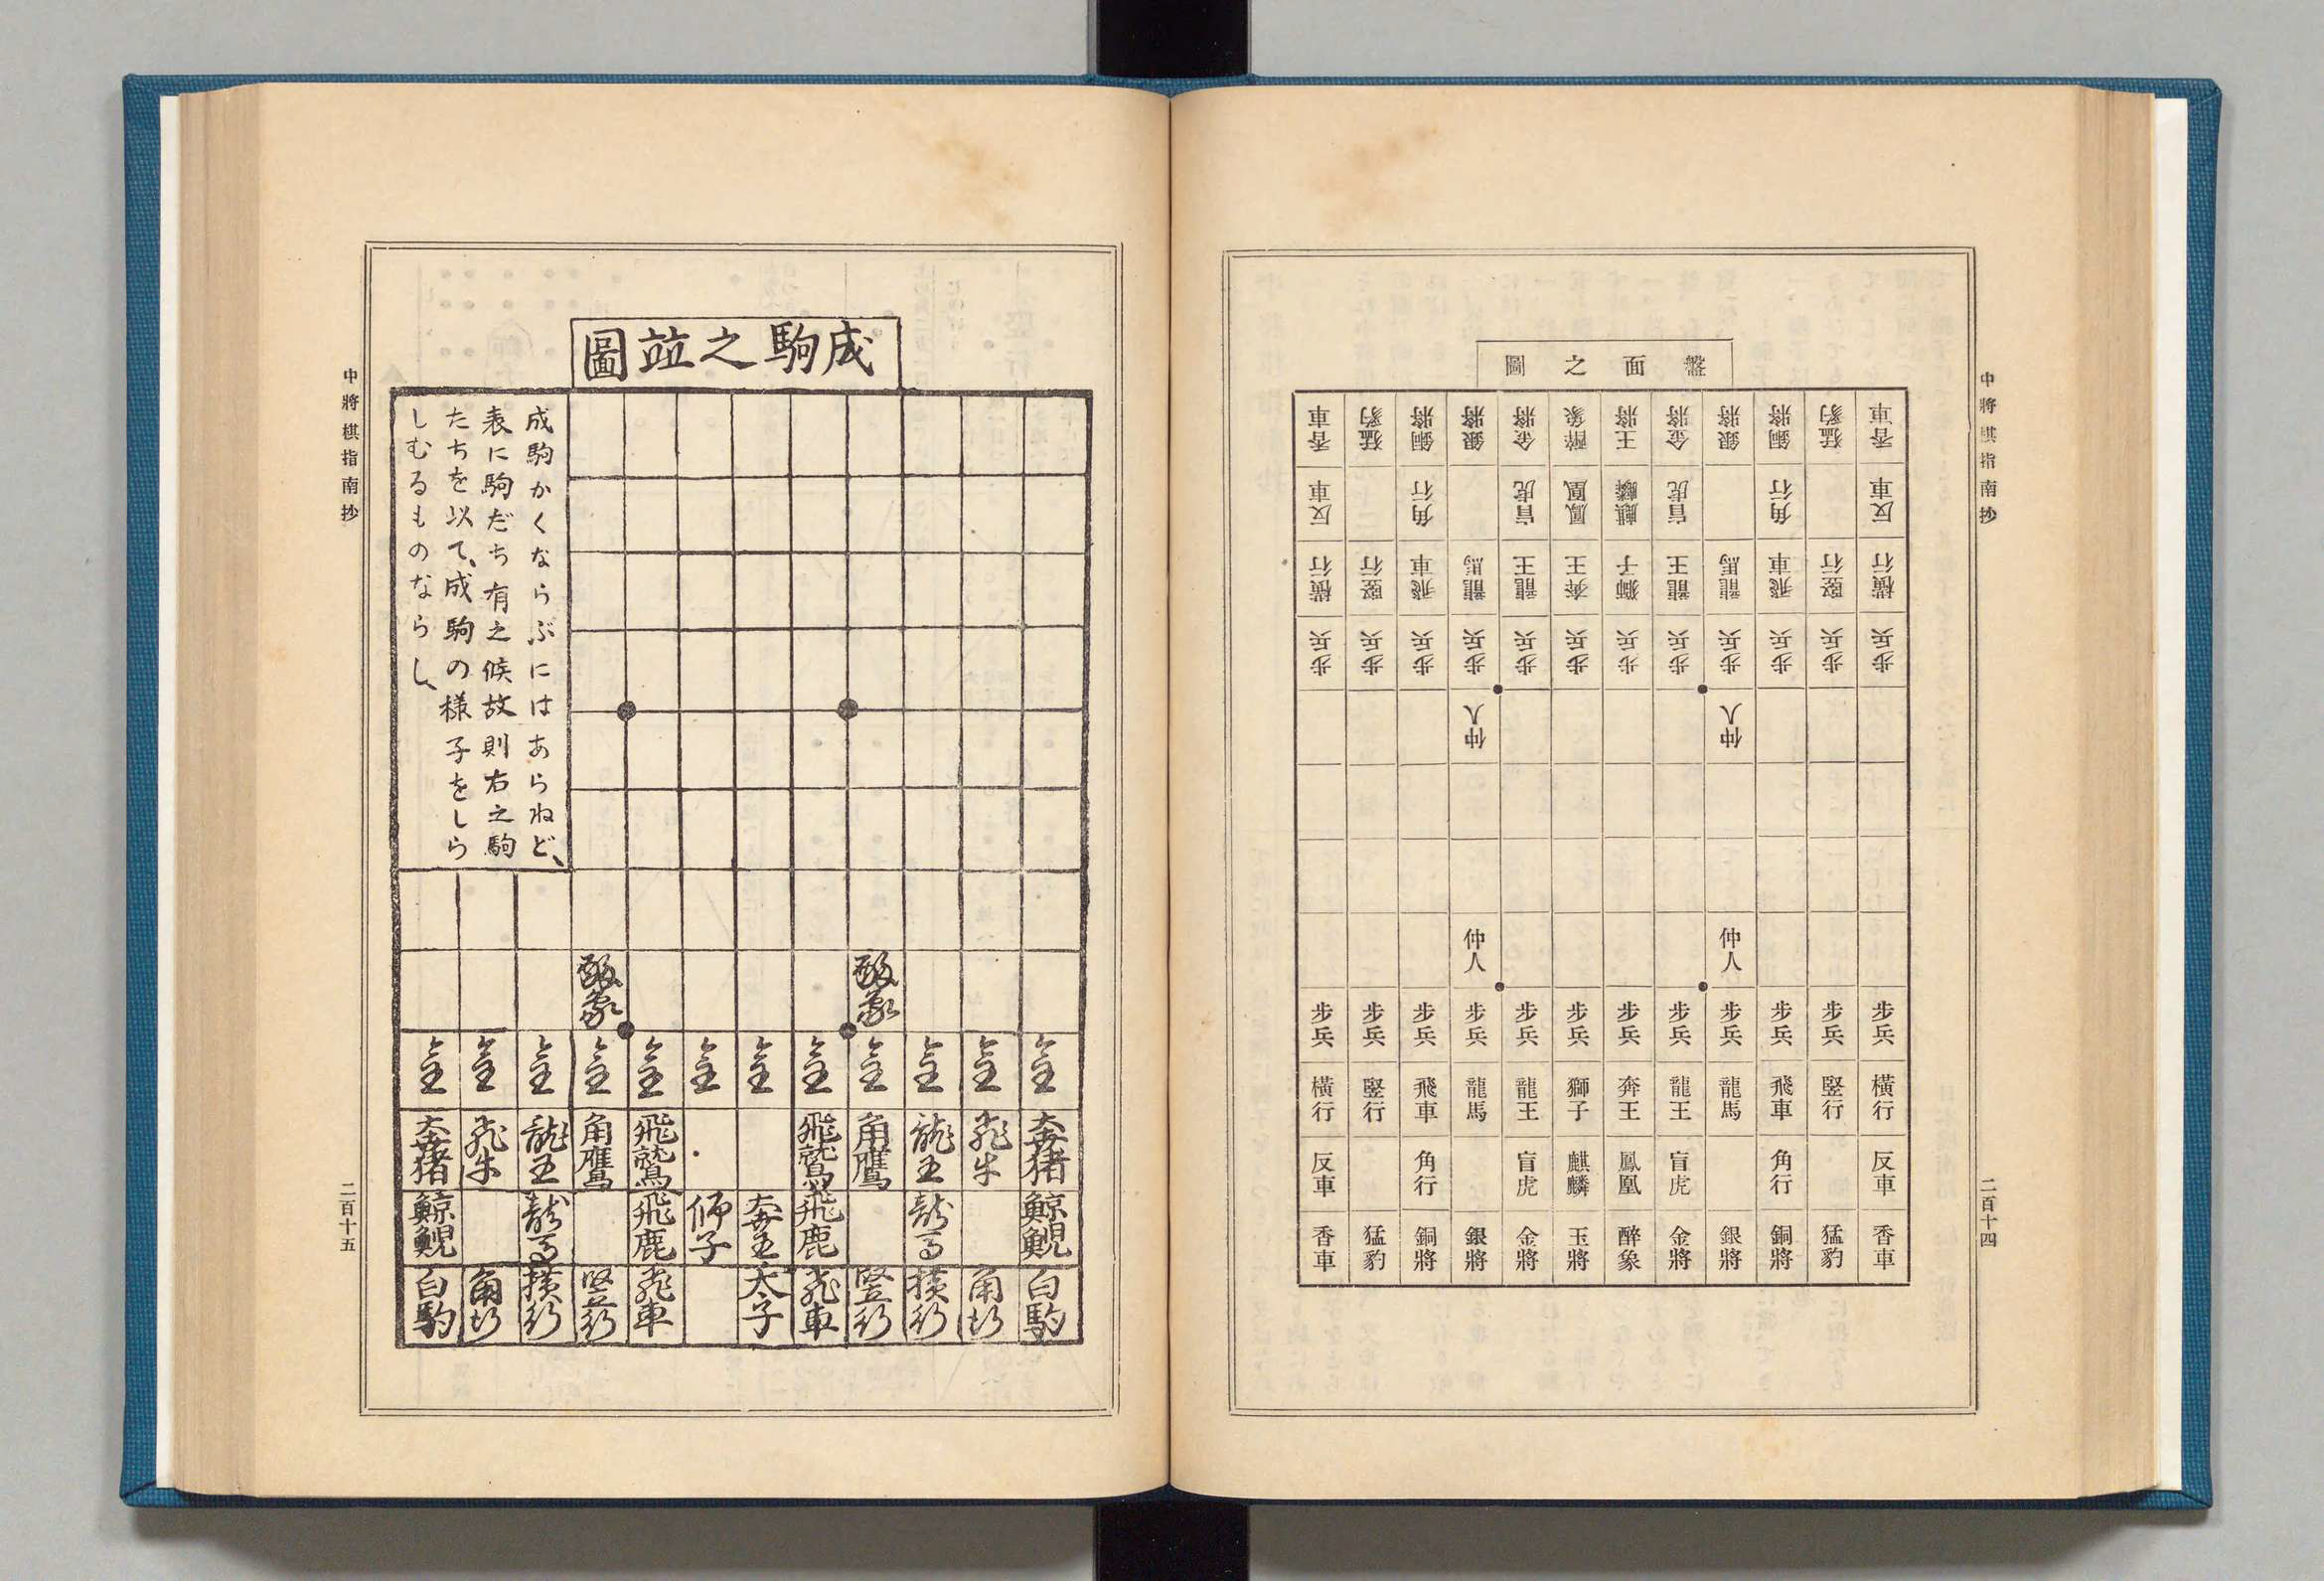 中將棋指南抄
二百十四
盤面之圖
香車 猛豹 銅將 銀將 金將 王將 醉象 金將 銀將 銅將 猛豹 香車
反車 角行 盲虎 麒麟 鳳凰 盲虎 角行 反車
橫行 竪行 飛車 龍馬 龍王 獅子 奔王 龍王 龍馬 飛車 竪行 橫行
步兵 步兵 步兵 步兵 步兵 步兵 步兵 步兵 步兵 步兵 步兵 步兵
仲人 仲人
仲人 仲人
步兵 步兵 步兵 步兵 步兵 步兵 步兵 步兵 步兵 步兵 步兵 步兵
橫行 竪行 飛車 龍馬 龍王 奔王 獅子 龍王 龍馬 飛車 竪行 橫行
反車 角行 盲虎 鳳凰 麒麟 盲虎 角行 反車
香車 猛豹 銅將 銀將 金將 醉象 玉將 金將 銀將 銅將 猛豹 香車
成駒之竝圖
成駒かくならぶにはあらねど、
表に駒だち有之候故則右之駒
たちを以て、成駒の様子をしら
しむるものならし、
醉象 醉象
金 金 金 金 金 金 金 金 金 金 金 金
奔猪 飛牛 龍王 角鷹 飛鷲 飛鷲 角鷹 龍王 飛牛 奔猪
鯨鯢 龍馬 飛鹿 奔王 師子 飛鹿 龍馬 鯨鯢
白駒 角行 横行 竪行 飛車 太子 飛車 竪行 横行 角行 白駒
中將棋指南抄
二百十五